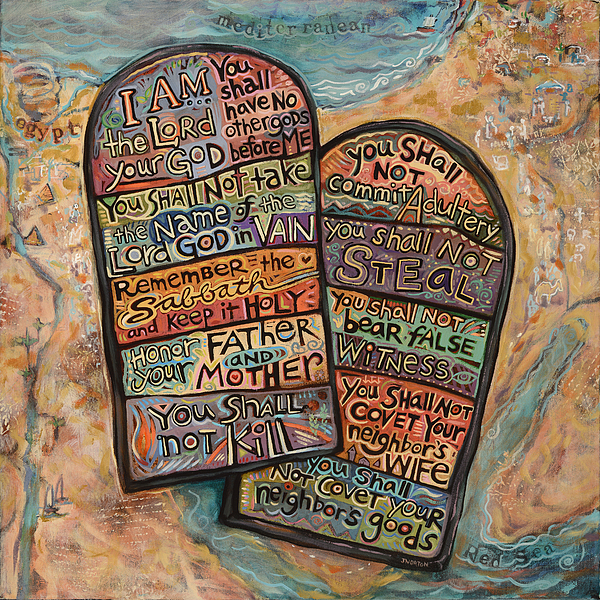 mediterranean
egypt
I AM
the LORD
your GOD
You
shall
have NO
other gods
before ME
You SHALL Not take
the Name of the
Lord GOD in VAIN
Remember the
Sabbath
and keep it HOLY
Honor your FATHER
AND
MOTHER
You SHALL
not Kill
you SHAll
NOT
commit Adultery
you shall NOT
STEAL
You shall NOT
bear FALSE
WITNESS
You SHALL NOT
COVET YOUR
neighbor's
WIFE
you SHALL
NOT COVET YOUR
neighbor's goods
J NORTON
Red Sea